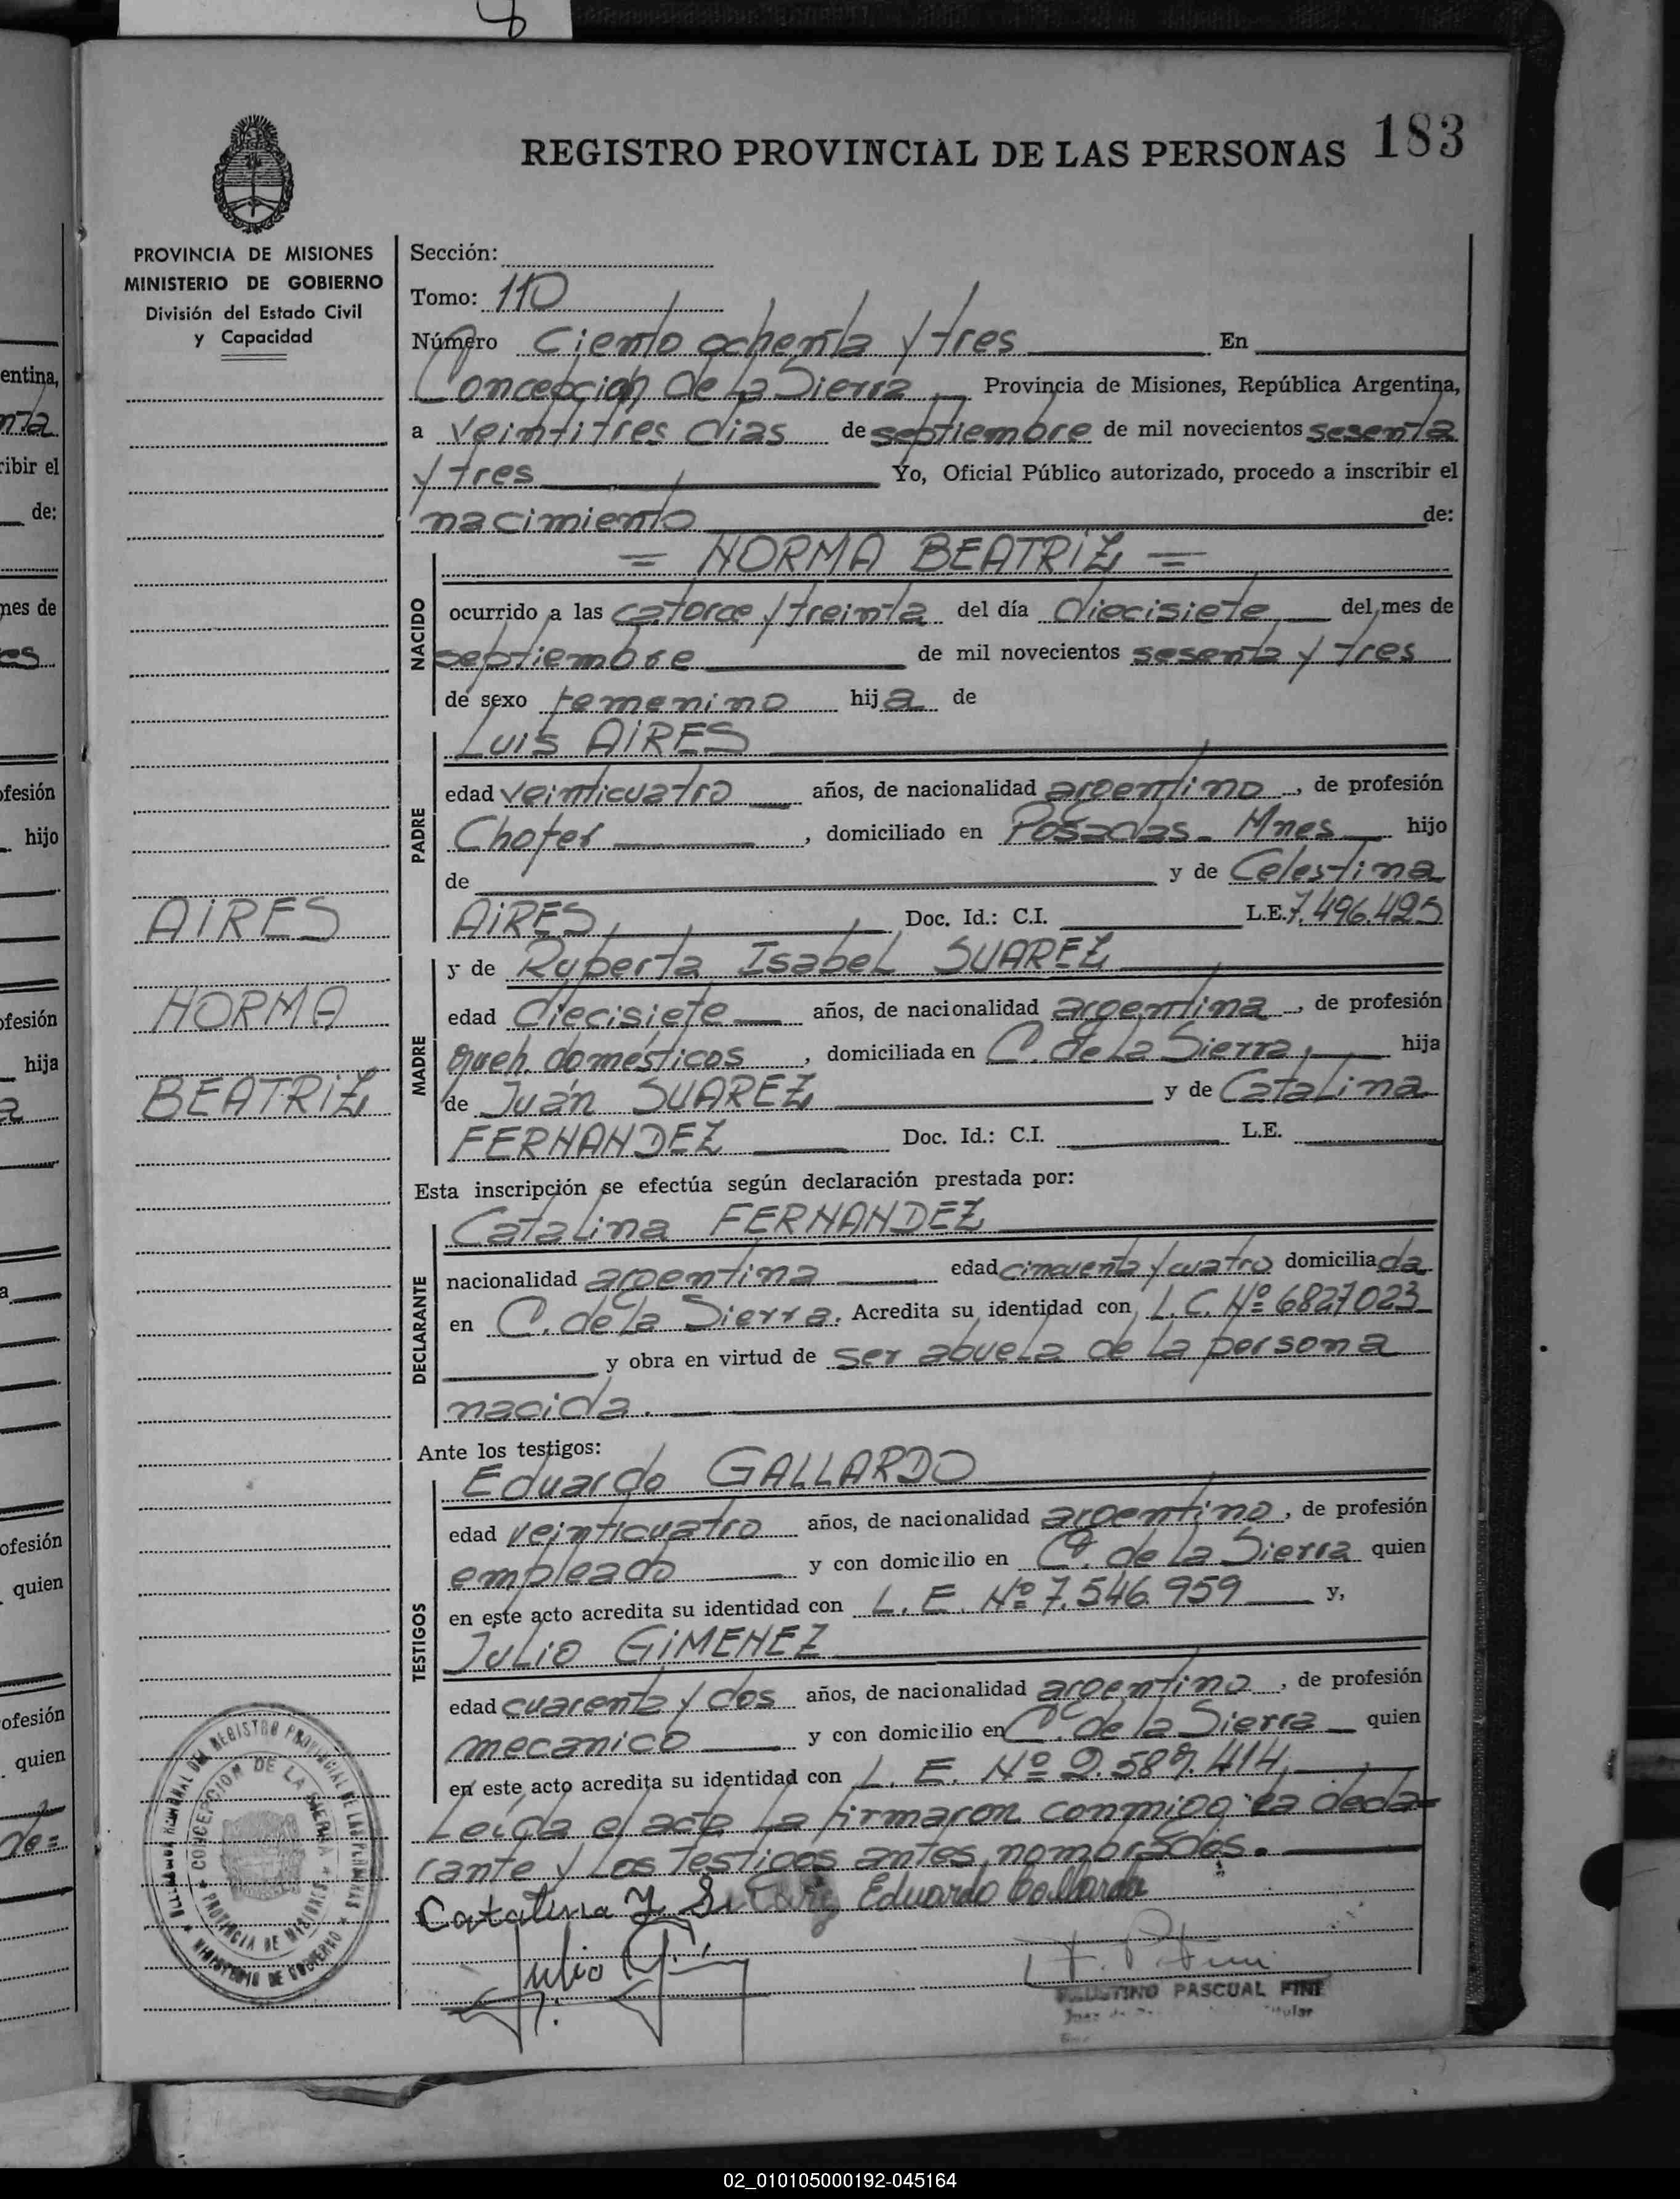 REGISTRO PROVINCIAL DE LAS PERSONAS 183
PROVINCIA DE MISIONES
MINISTERIO DE GOBIERNO
División del Estado Civil
y Capacidad
Sección:
Tomo: 110
Número Ciento ochenta y tres En
Concepción de la Sierra Provincia de Misiones, República Argentina,
a veintitres dias de septiembre de mil novecientos sesenta
y tres Yo, Oficial Público autorizado, procedo a inscribir el
nacimiento de:
= NORMA BEATRIZ =
NACIDO
ocurrido a las catorce y treinta del día diecisiete del mes de
septiembre de mil novecientos sesenta y tres
de sexo femenino hija de
PADRE
Luis AIRES
edad veinticuatro años, de nacionalidad argentino, de profesión
Chofer, domiciliado en Posadas - Mnes hijo
de y de Celestina
AIRES Doc. Id.: C.I. L.E. 7.496.425
MADRE
y de Ruperta Isabel SUAREZ
edad diecisiete años, de nacionalidad argentina, de profesión
queh. domésticos, domiciliada en C. de la Sierra, hija
de Juán SUAREZ y de Catalina
FERNANDEZ Doc. Id.: C.I. L.E.
AIRES
NORMA
BEATRIZ
Esta inscripción se efectúa según declaración prestada por:
DECLARANTE
Catalina FERNANDEZ
nacionalidad argentina edad cincuenta y cuatro domiciliada
en C. de la Sierra. Acredita su identidad con L.C. Nº 6827023
y obra en virtud de ser abuela de la persona
nacida.
Ante los testigos:
TESTIGOS
Eduardo GALLARDO
edad veinticuatro años, de nacionalidad argentino, de profesión
empleado y con domicilio en C. de la Sierra quien
en este acto acredita su identidad con L.E. Nº 7.546.959 y,
Julio GIMENEZ
edad cuarenta y dos años, de nacionalidad argentino, de profesión
mecanico y con domicilio en C. de la Sierra quien
en este acto acredita su identidad con L.E. Nº 2.589.414,
Leída el acta la firmaron conmigo la decla-
rante y los testigos antes nombrados.
Catalina Eduardo Gallardo
Julio G.
FAUSTINO PASCUAL FINI
CONCEPCION DE LA SIERRA
PROVINCIA DE MISIONES
MINISTERIO DE GOBIERNO
entina,
ribir el
de:
mes de
ofesión
hijo
ofesión
hija
ofesión
quien
ofesión
quien
02_010105000192-045164